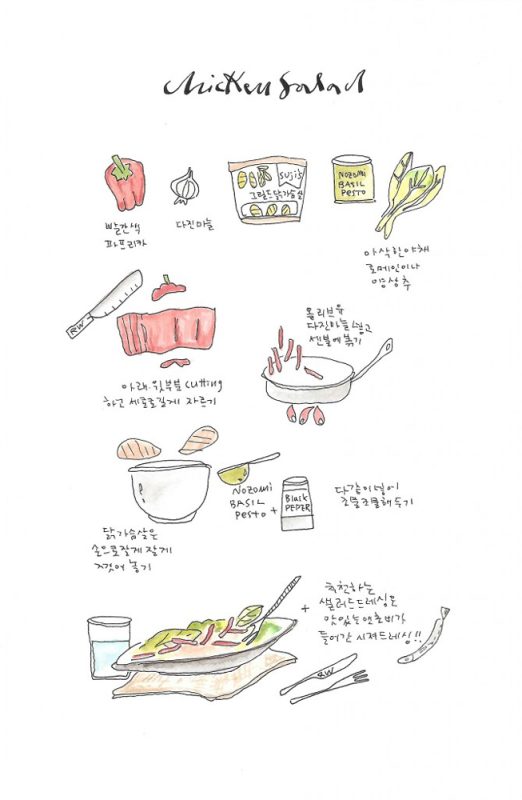 chicken salad
빨간색
파프리카
다진마늘
suji's
그릴드닭가슴살
NOZOMI
BASIL
PESTO
아삭한야채
로메인이나
양상추
RW
아래·윗부분 cutting
하고 세로로길게 자르기
올리브유
다진마늘 넣고
센불에볶기
NOZOMI
BASIL
Pesto +
Black
PEPER
다같이넣어
조물조물해두기
닭가슴살은
손으로잘게 잘게
찢어 놓기
+ 추천하는
샐러드드레싱은
맛있는앤초비가
들어간 시져드레싱!!
RW